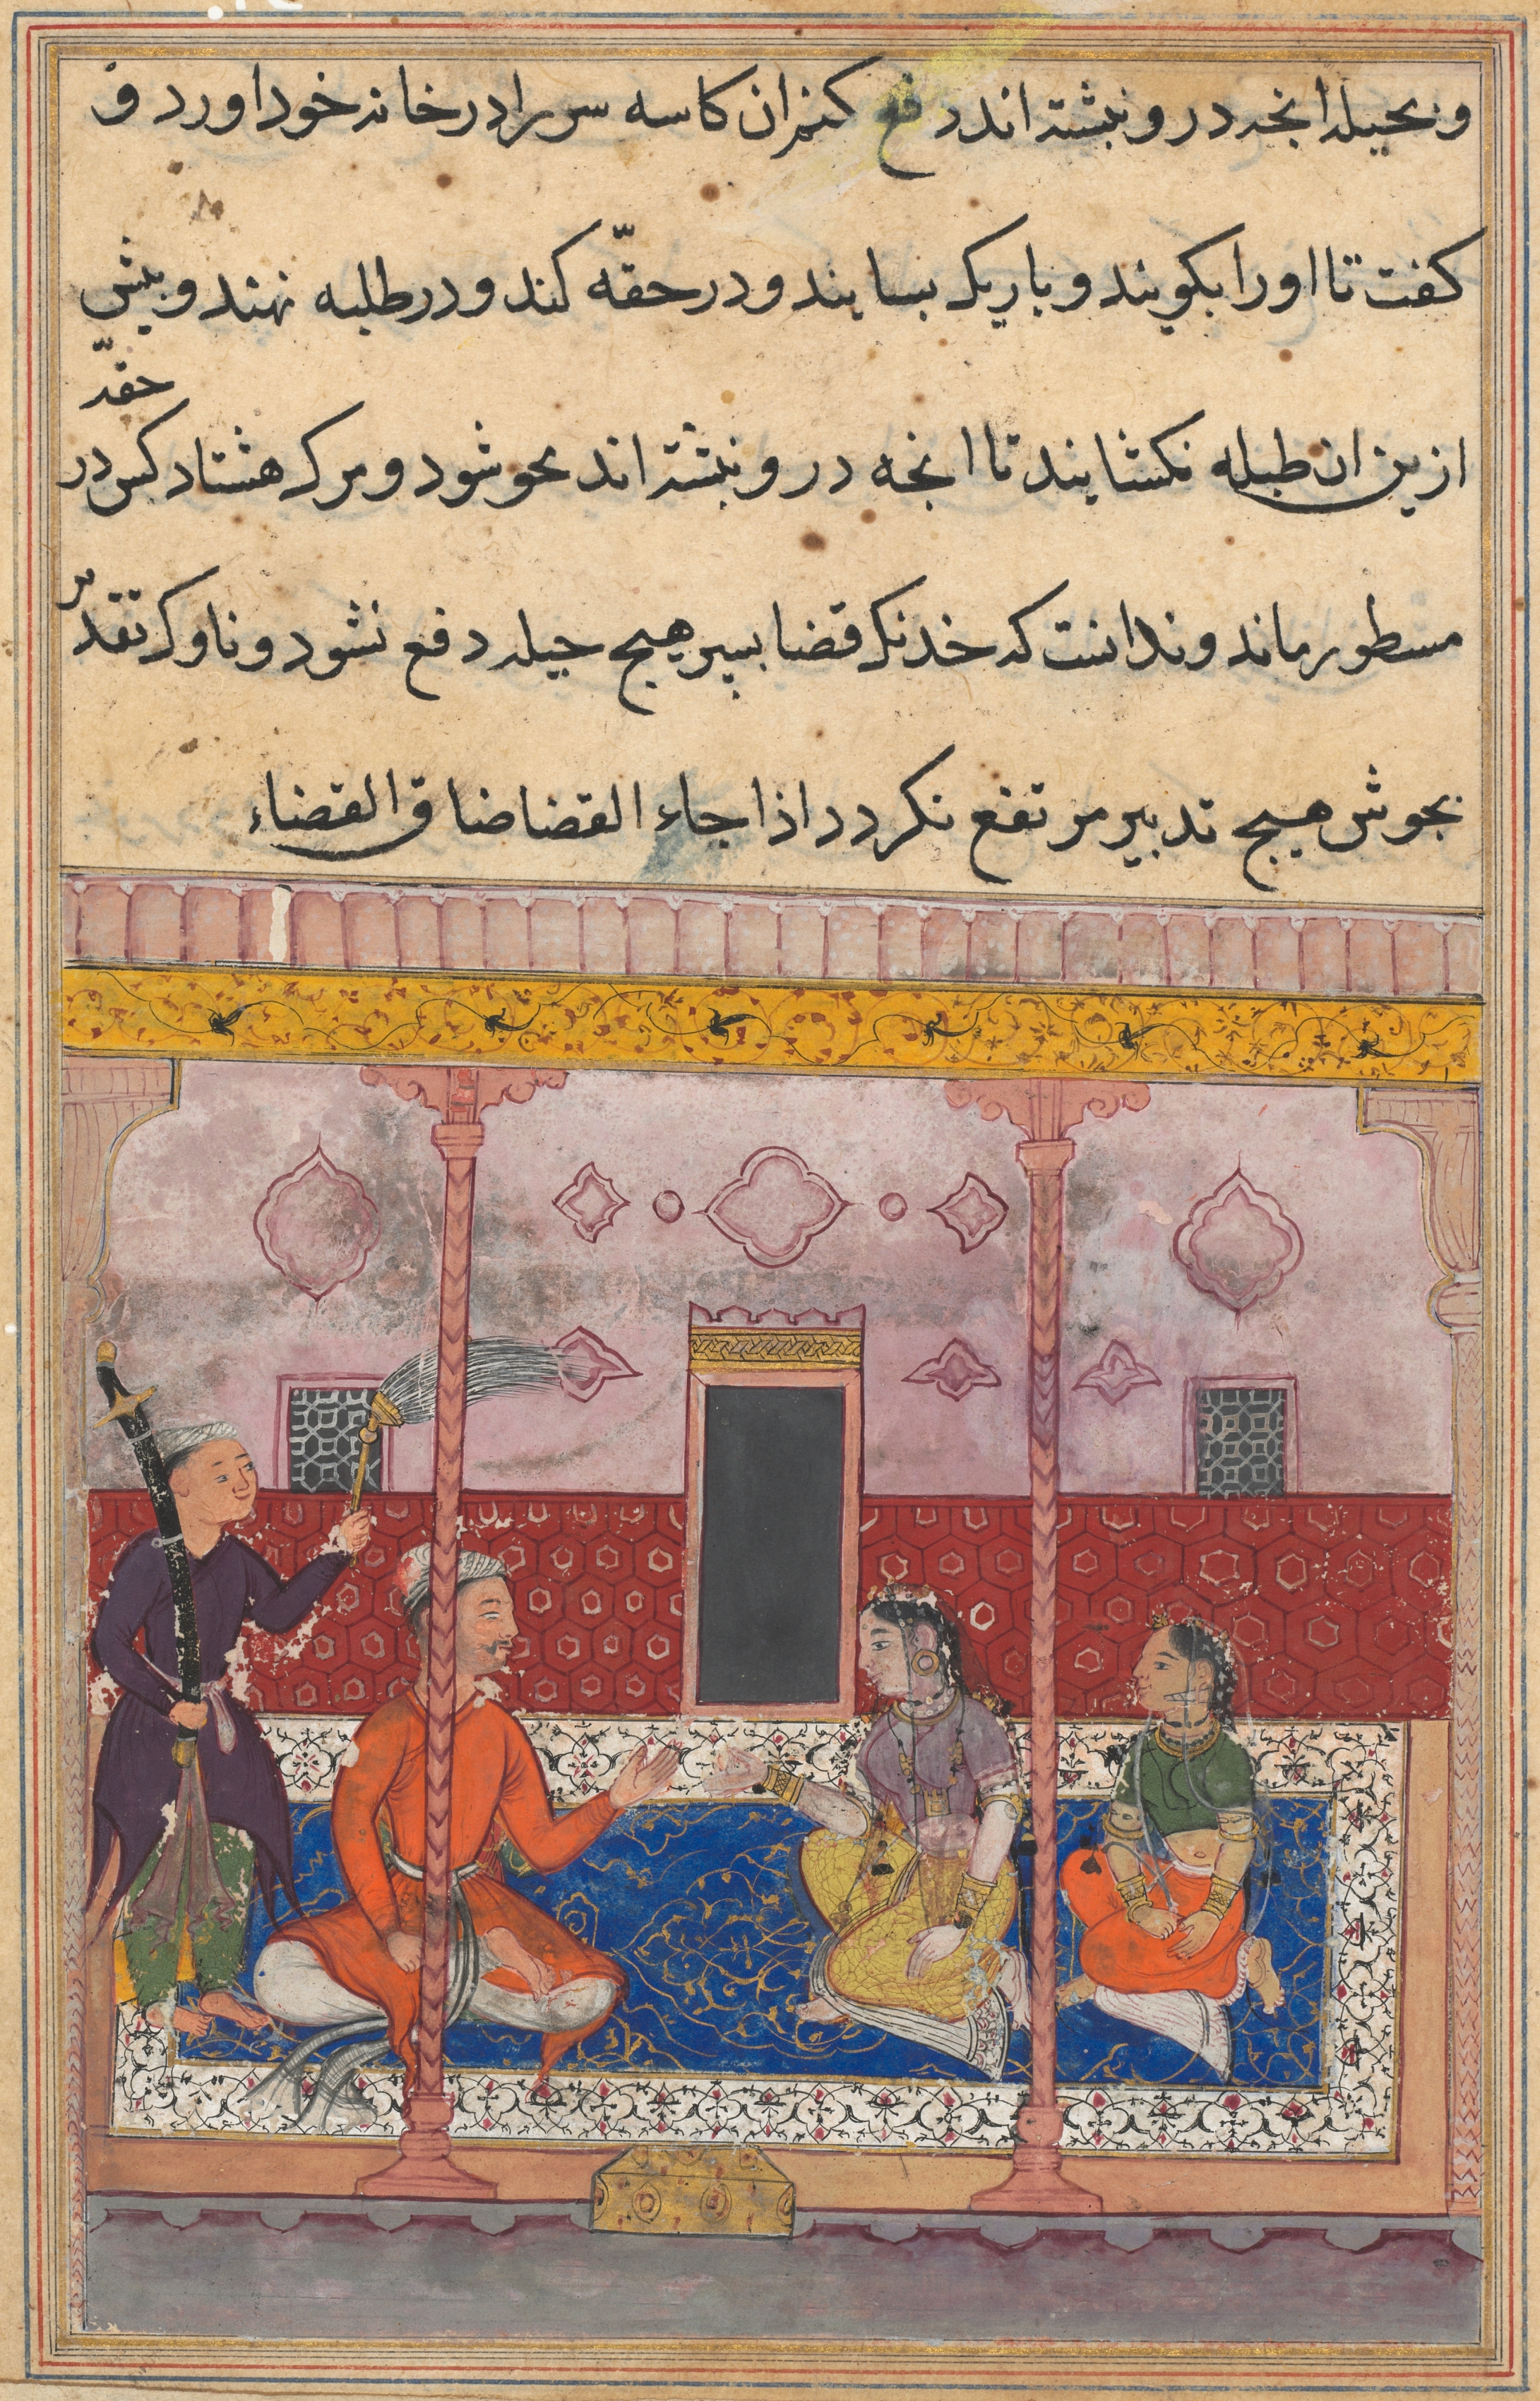 و بحیله انچه درو نبشته اند دفع کنم ان کاسه سر را در خانه خود اورد و
کفت تا اورا بکویند و باریک بسایند و در حقه کنند و در طلبه نهند و بیش
حقه
ازین ان طبله نکشایند تا انچه درو نبشته اند محو شود و مرک هشتاد کس در
مسطور ماند و ندانست که خدنک قضا بسپر هیج حیله دفع نشود و ناوک تقدیر
بجوش هیج تدبیر مرتفع نکردد اذا جاء القضا ضاق القضاء